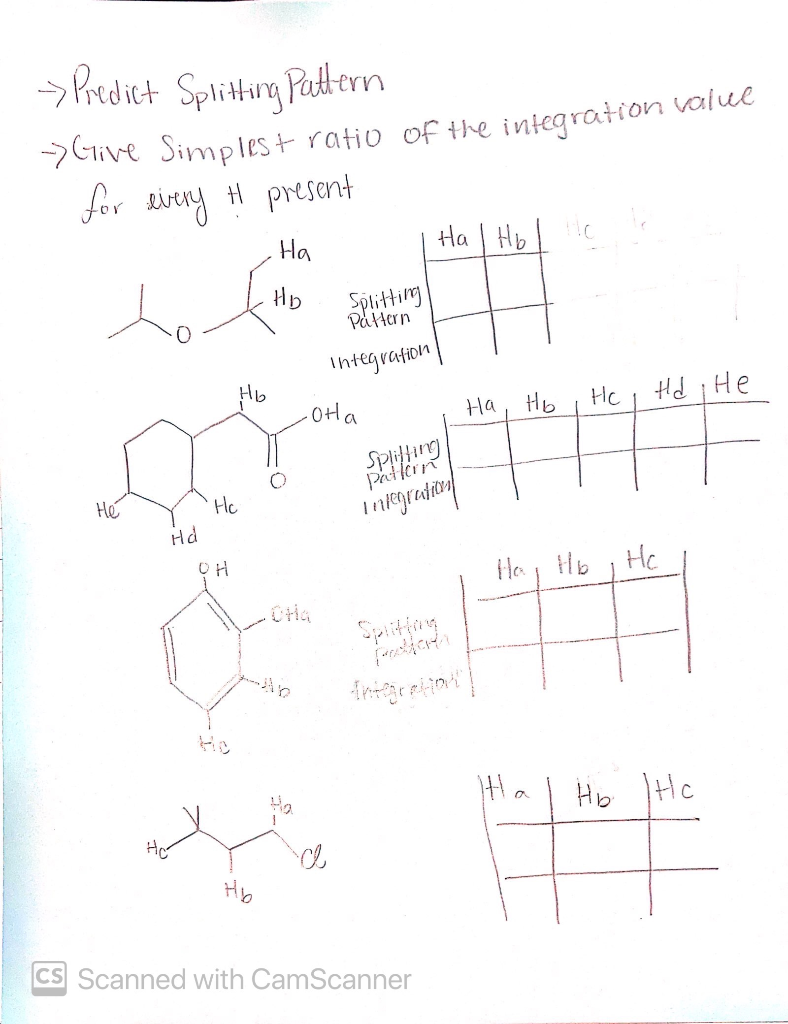 → Predict Splitting Pattern
→ Give Simplest ratio of the integration value
for every H present
Ha Hb Hc
Ha
Hb
O
Splitting
Pattern
Integration
Hb
OHa
O
He
Hc
Hd
Ha Hb Hc Hd He
Splitting
Pattern
Integration
OH
OHa
Hb
Hc
Ha Hb Hc
Splitting
Pattern
Integration
Ha
Hc
Cl
Hb
Ha Hb Hc
CS Scanned with CamScanner